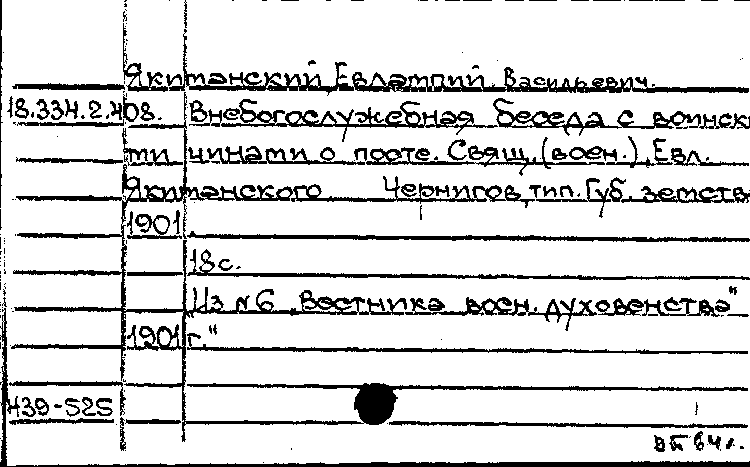 Якиманский, Евлампий Васильевич.
18.334.2.408. Внебогослужебная беседа с воински
ми чинами о посте. Свящ. (воен.) Евл.
Якиманского Чернигов, тип. Губ. земств
1901
18 с.
„Из №6 „Вестника воен. духовенства"
1901 г."
439-525